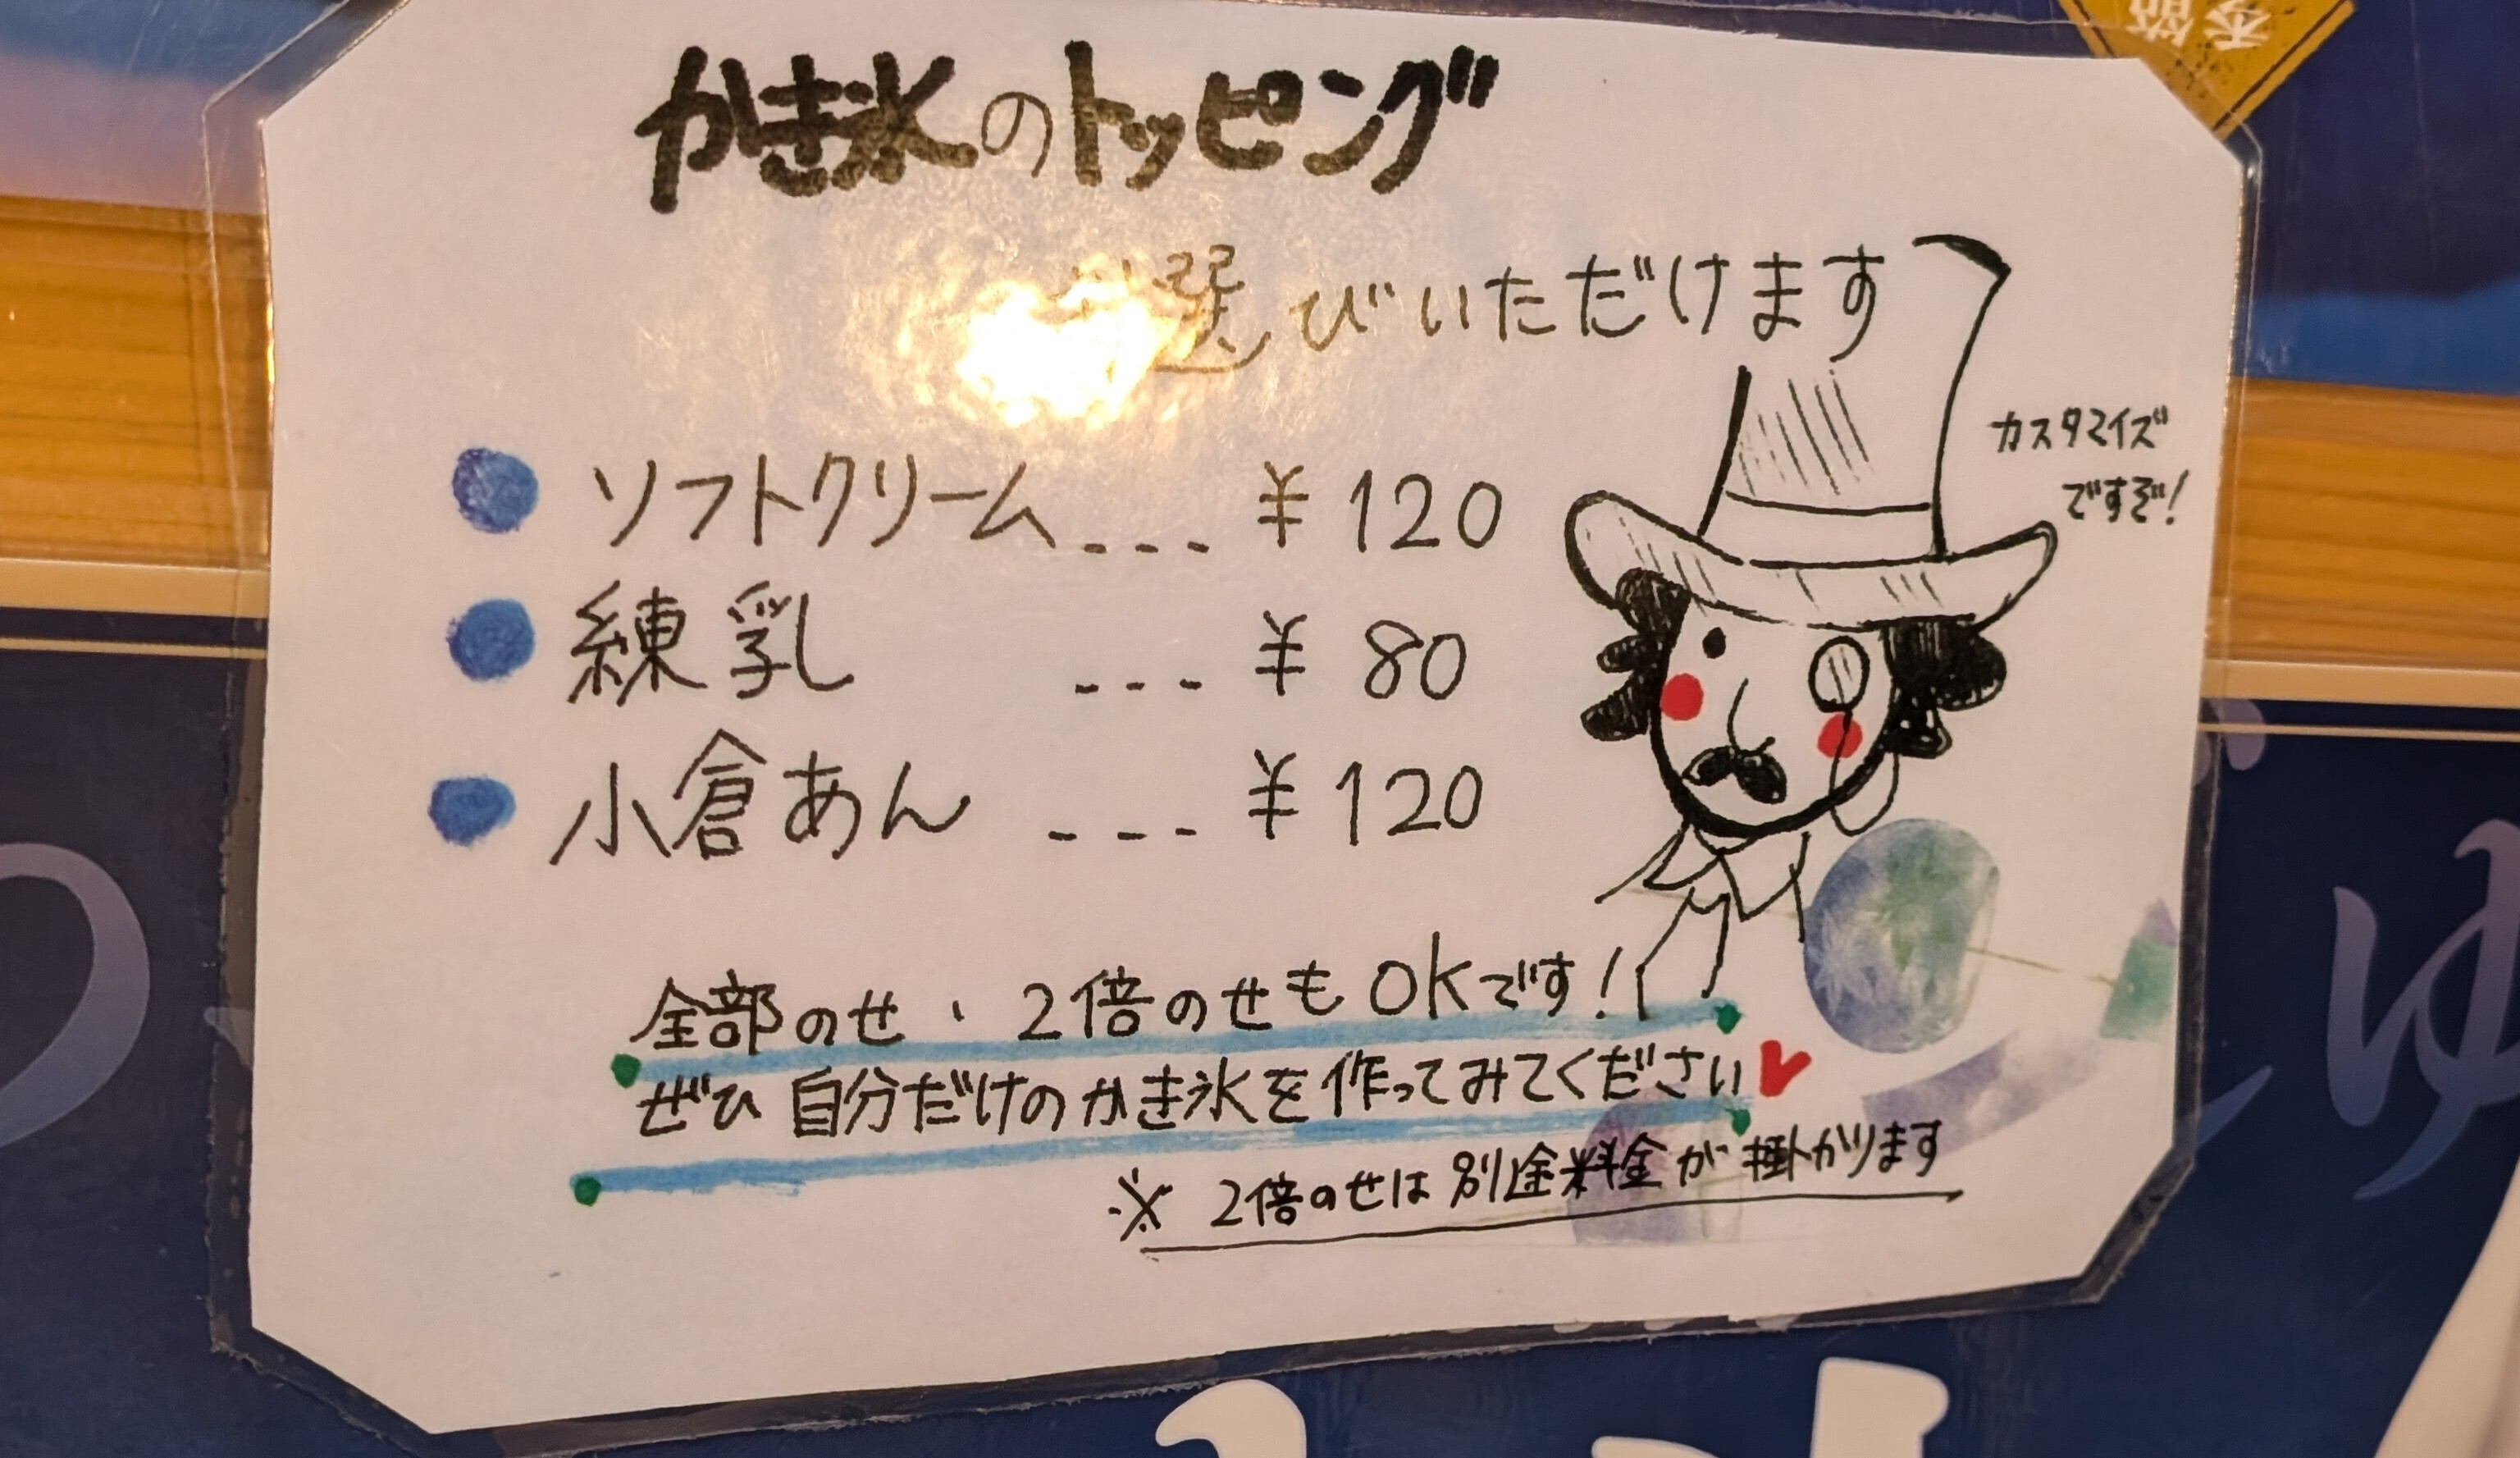 かき氷のトッピング
お選びいただけます
カスタマイズ
ですぞ!
ソフトクリーム... ¥120
練乳 ... ¥80
小倉あん ... ¥120
全部のせ、2倍のせもOKです!
ぜひ自分だけのかき氷を作ってみてください
※ 2倍のせは別途料金が掛かります